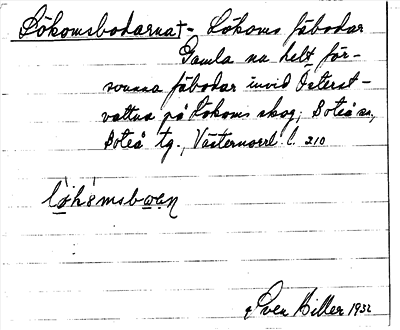 Sökomsbodarna† - Sökoms fäbodar
Gamla nu helt för-
svunna fäbodar invid Österst-
vattna på Sökoms skog, Boteå sn,
Boteå tg., Västernorrl. l. 210
Sven Biller 1932